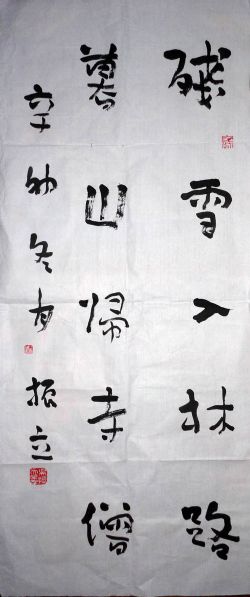 殘雪入林路
暮山歸寺僧
辛卯冬月 振立